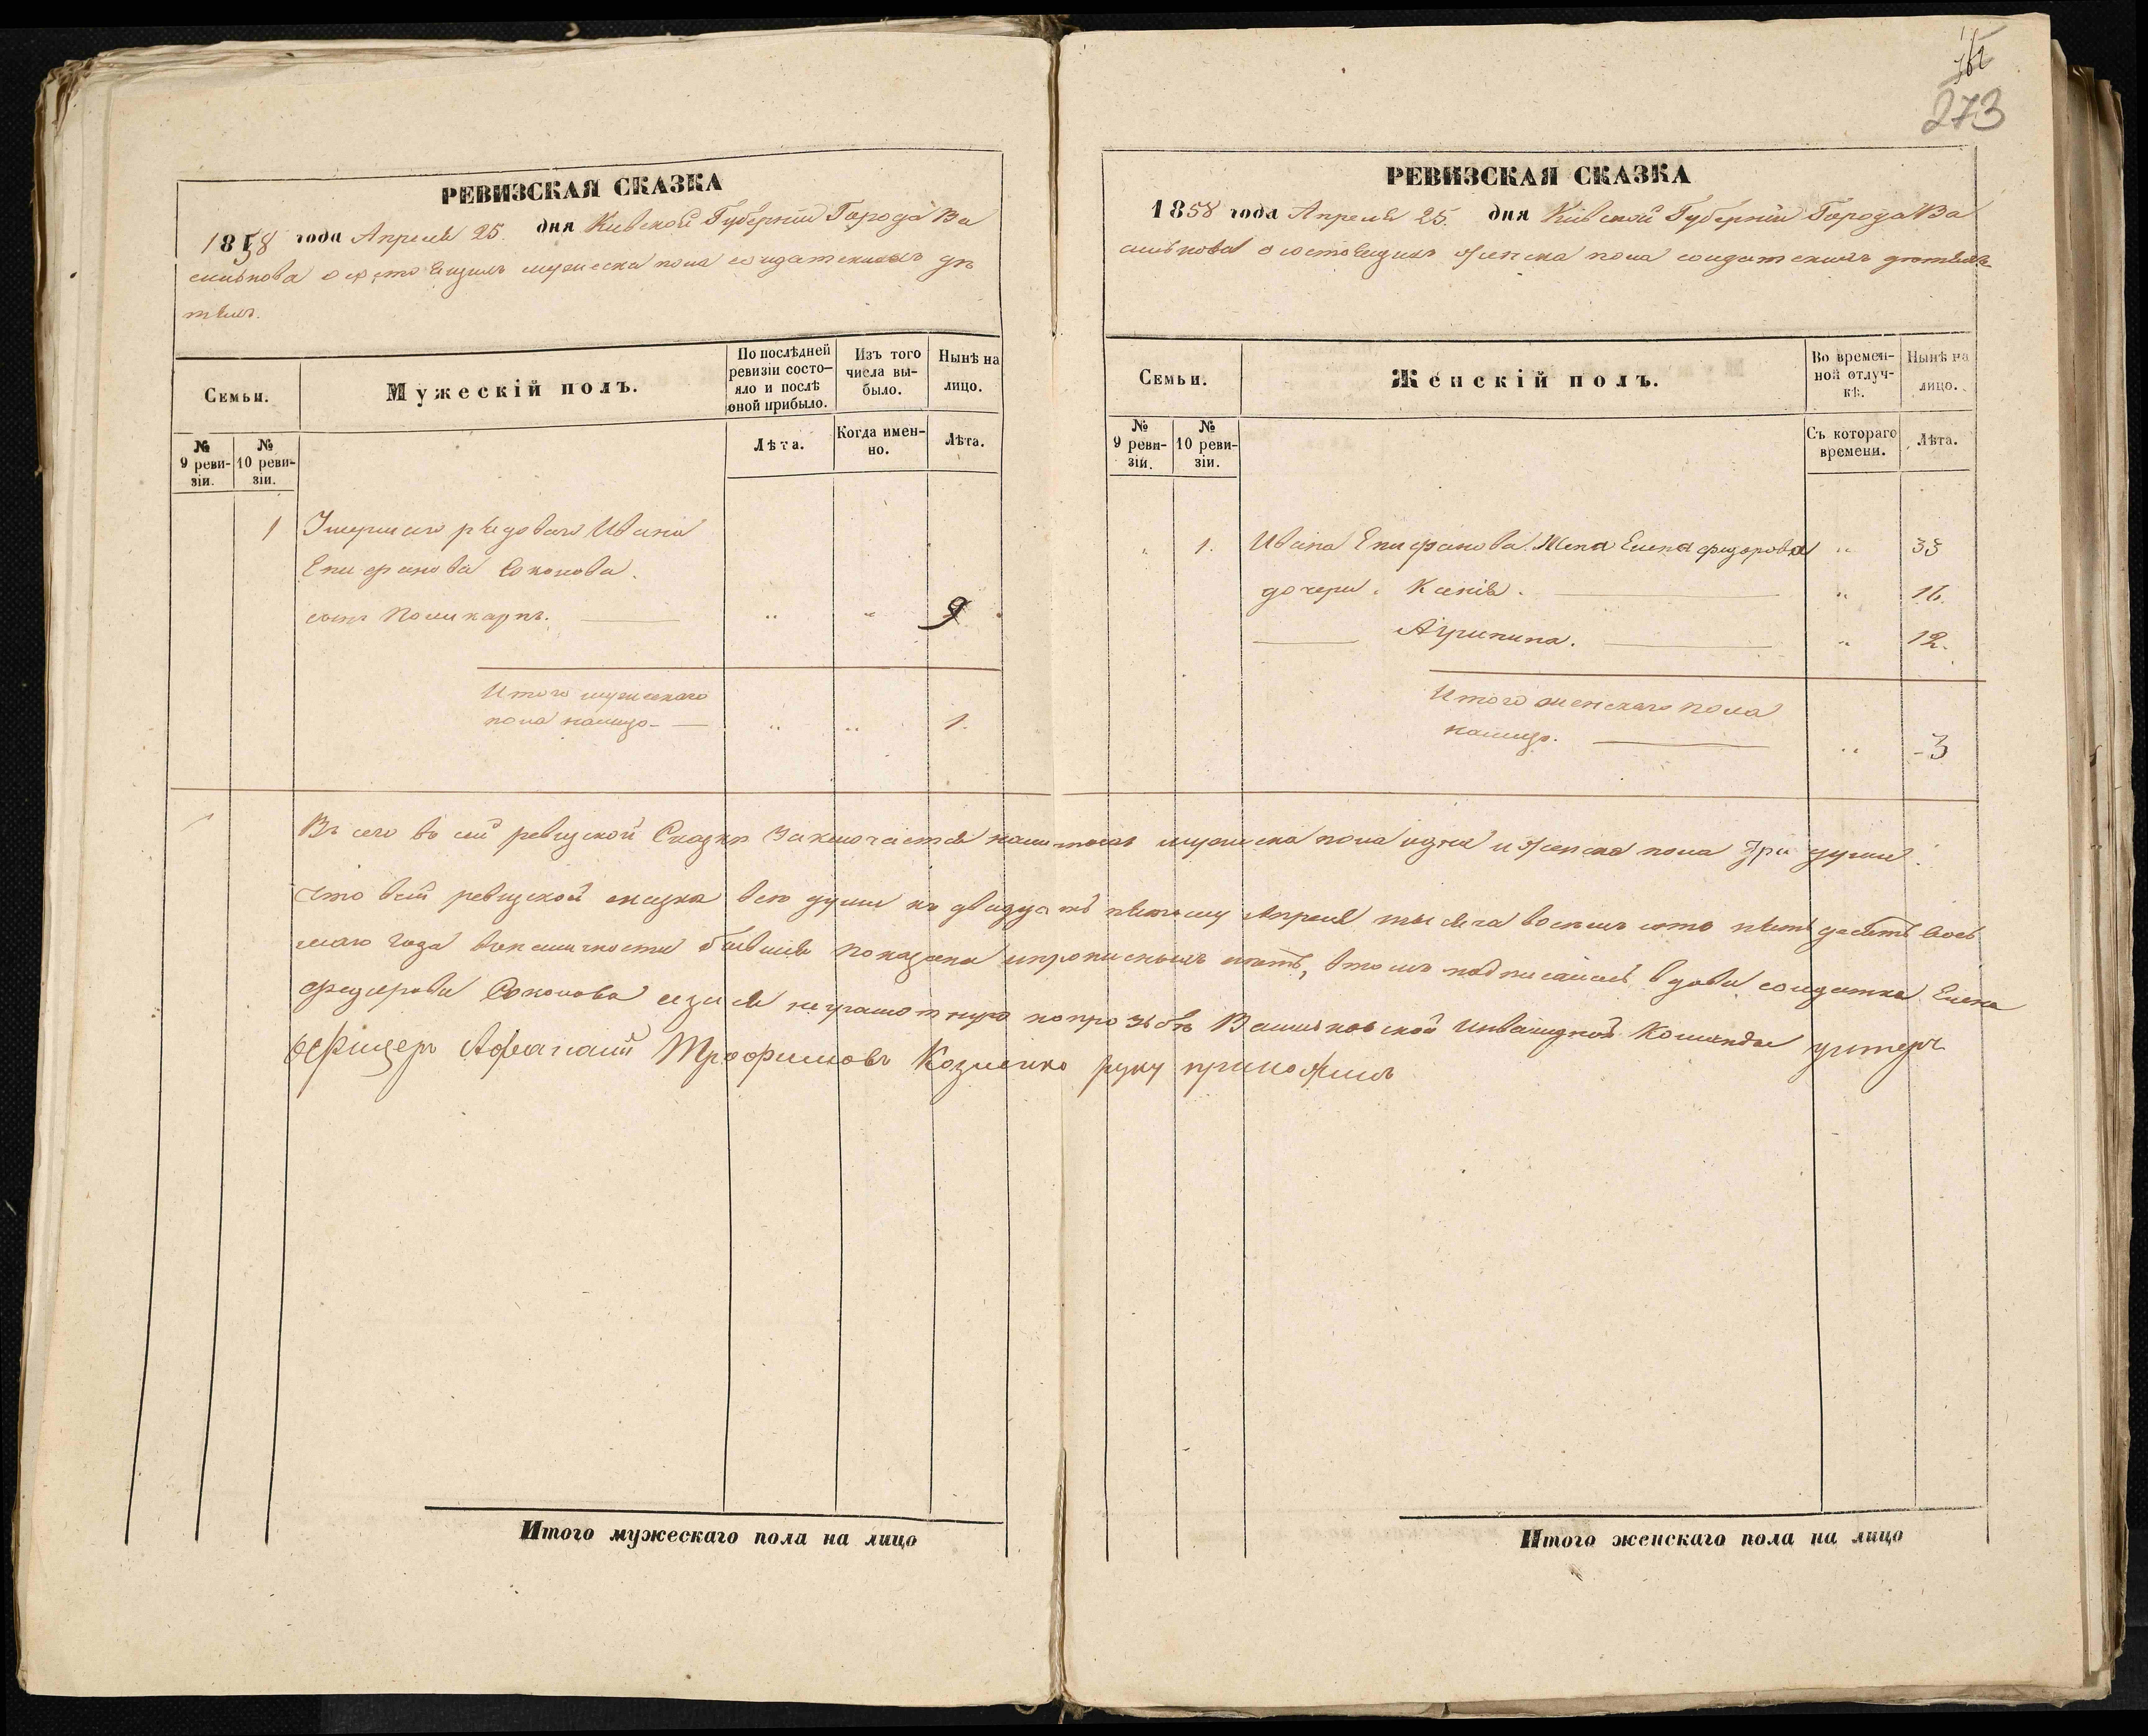 РЕВИЗСКАЯ СКАЗКА
1858 года Апреля 25. дня Киевской Губернии Города Ва
силькова о состоящихъ мужеска пола солдатскихъ дѣ
тяхъ.
Семьи.
Мужескій полъ.
По послѣдней ревизіи состо-
яло и послѣ оной прибыло.
Изъ того числа вы-
было.
Нынѣ на лицо.
№ 9 реви-
зіи.
№ 10 реви-
зіи.
Лѣта.
Когда имен-
но.
Лѣта.
1 Умершаго рядоваго Ивана
Епифанова Соколова.
сынъ Поликарпъ. 9
Итого мужескаго
пола налицо 1.
162
273
РЕВИЗСКАЯ СКАЗКА
1858 года Апреля 25. дня Кіевской Губерніи Города Ва
силькова о состоящихъ женска пола солдатскихъ дѣтяхъ
Семьи.
Женскій полъ.
Во времен-
ной отлуч-
кѣ.
Нынѣ на лицо.
№ 9 реви-
зіи.
№ 10 реви-
зіи.
Съ котораго времени.
Лѣта.
1. Ивана Епифанова Жена Елена Федорова 33
дочери. Ксенія. 16.
Агрипина. 12.
Итого женскаго пола
налицо. 3
Въ сего въ сей ревизской Сказкѣ Заключается мужеска пола одна и женска пола Три души.
Что всей ревизской сказка всѣ души къ двадцать пятому Апреля тысяча восемь сотъ пять десятъ вось
маго года показана, втомъ подписалась вдова солдатка Елена
Федорова Соколова аза ея неграмотную попрозьбѣ Васильковской Инвалидной Команды унтеръ
Офицеръ Афанасий Трофимовъ Козленко руку приложилъ
Итого мужескаго пола на лицо
Итого женскаго пола на лицо